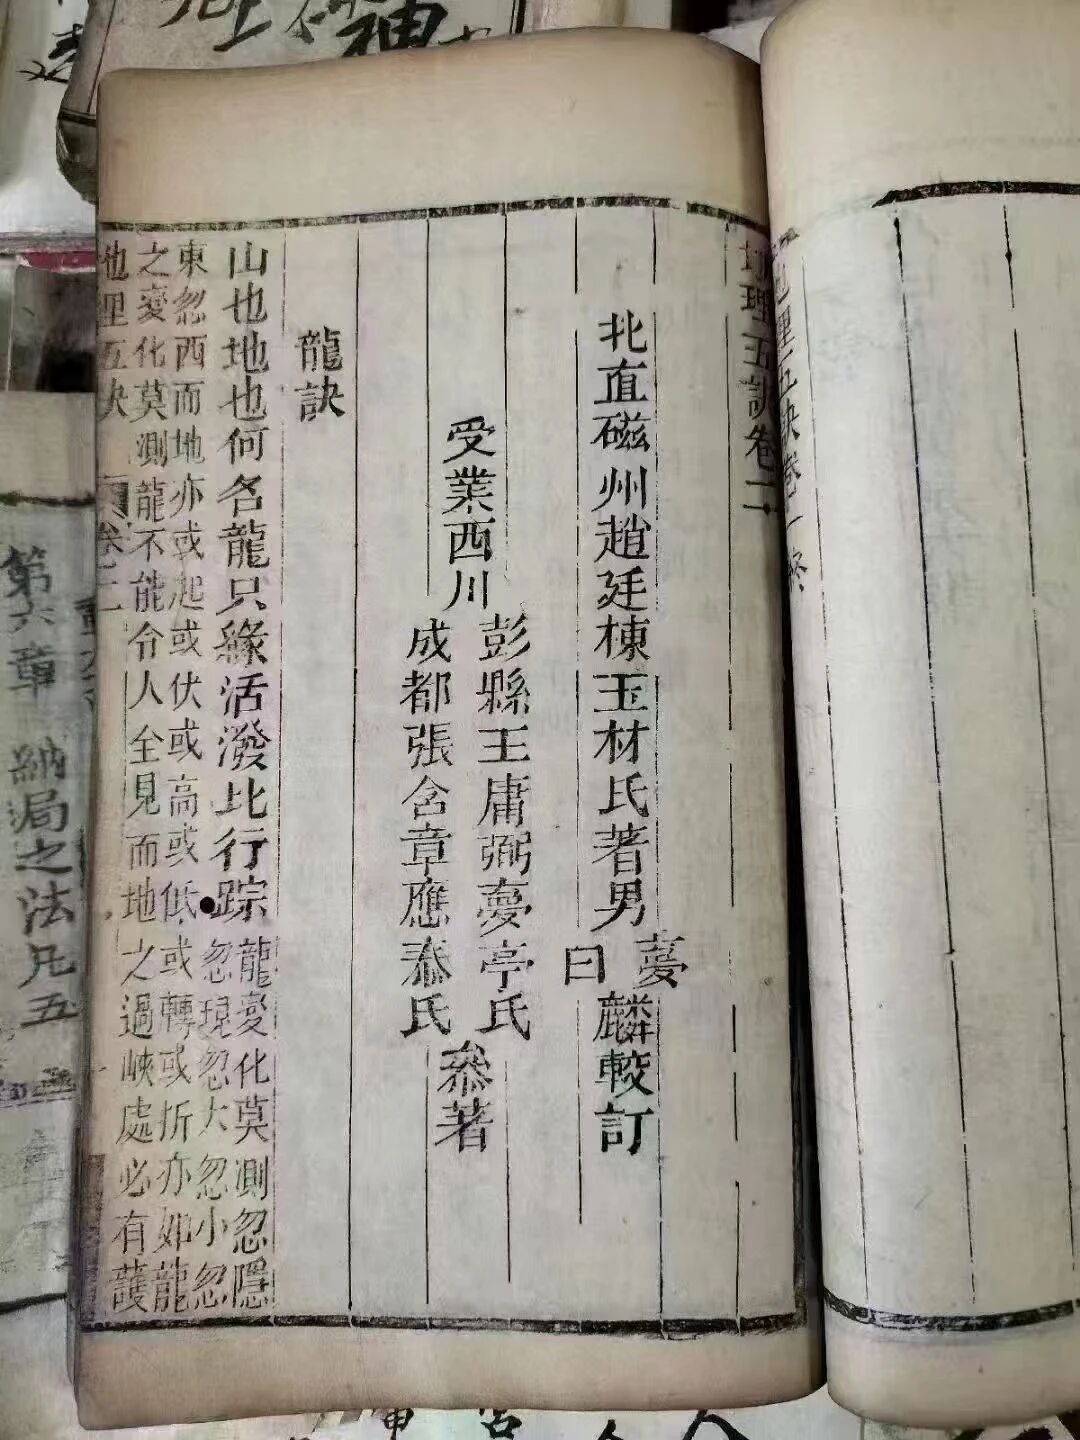 地理五訣卷一終
地理五訣卷二
北直磁州趙廷棟玉材氏著男夢曰麟較訂
受業西川
彭縣王庸弼夢亭氏
成都張含章應泰氏
叅著
龍訣
山也地也何名龍只緣活潑比行踪
龍變化莫測忽隱
忽現忽大忽小忽
東忽西而地亦或起或伏或高或低或轉或折亦如龍
之變化莫測龍不能令人全見而地之過峽處必有護
地理五訣
卷二
第六章 納局之法凡五
神
宮
人